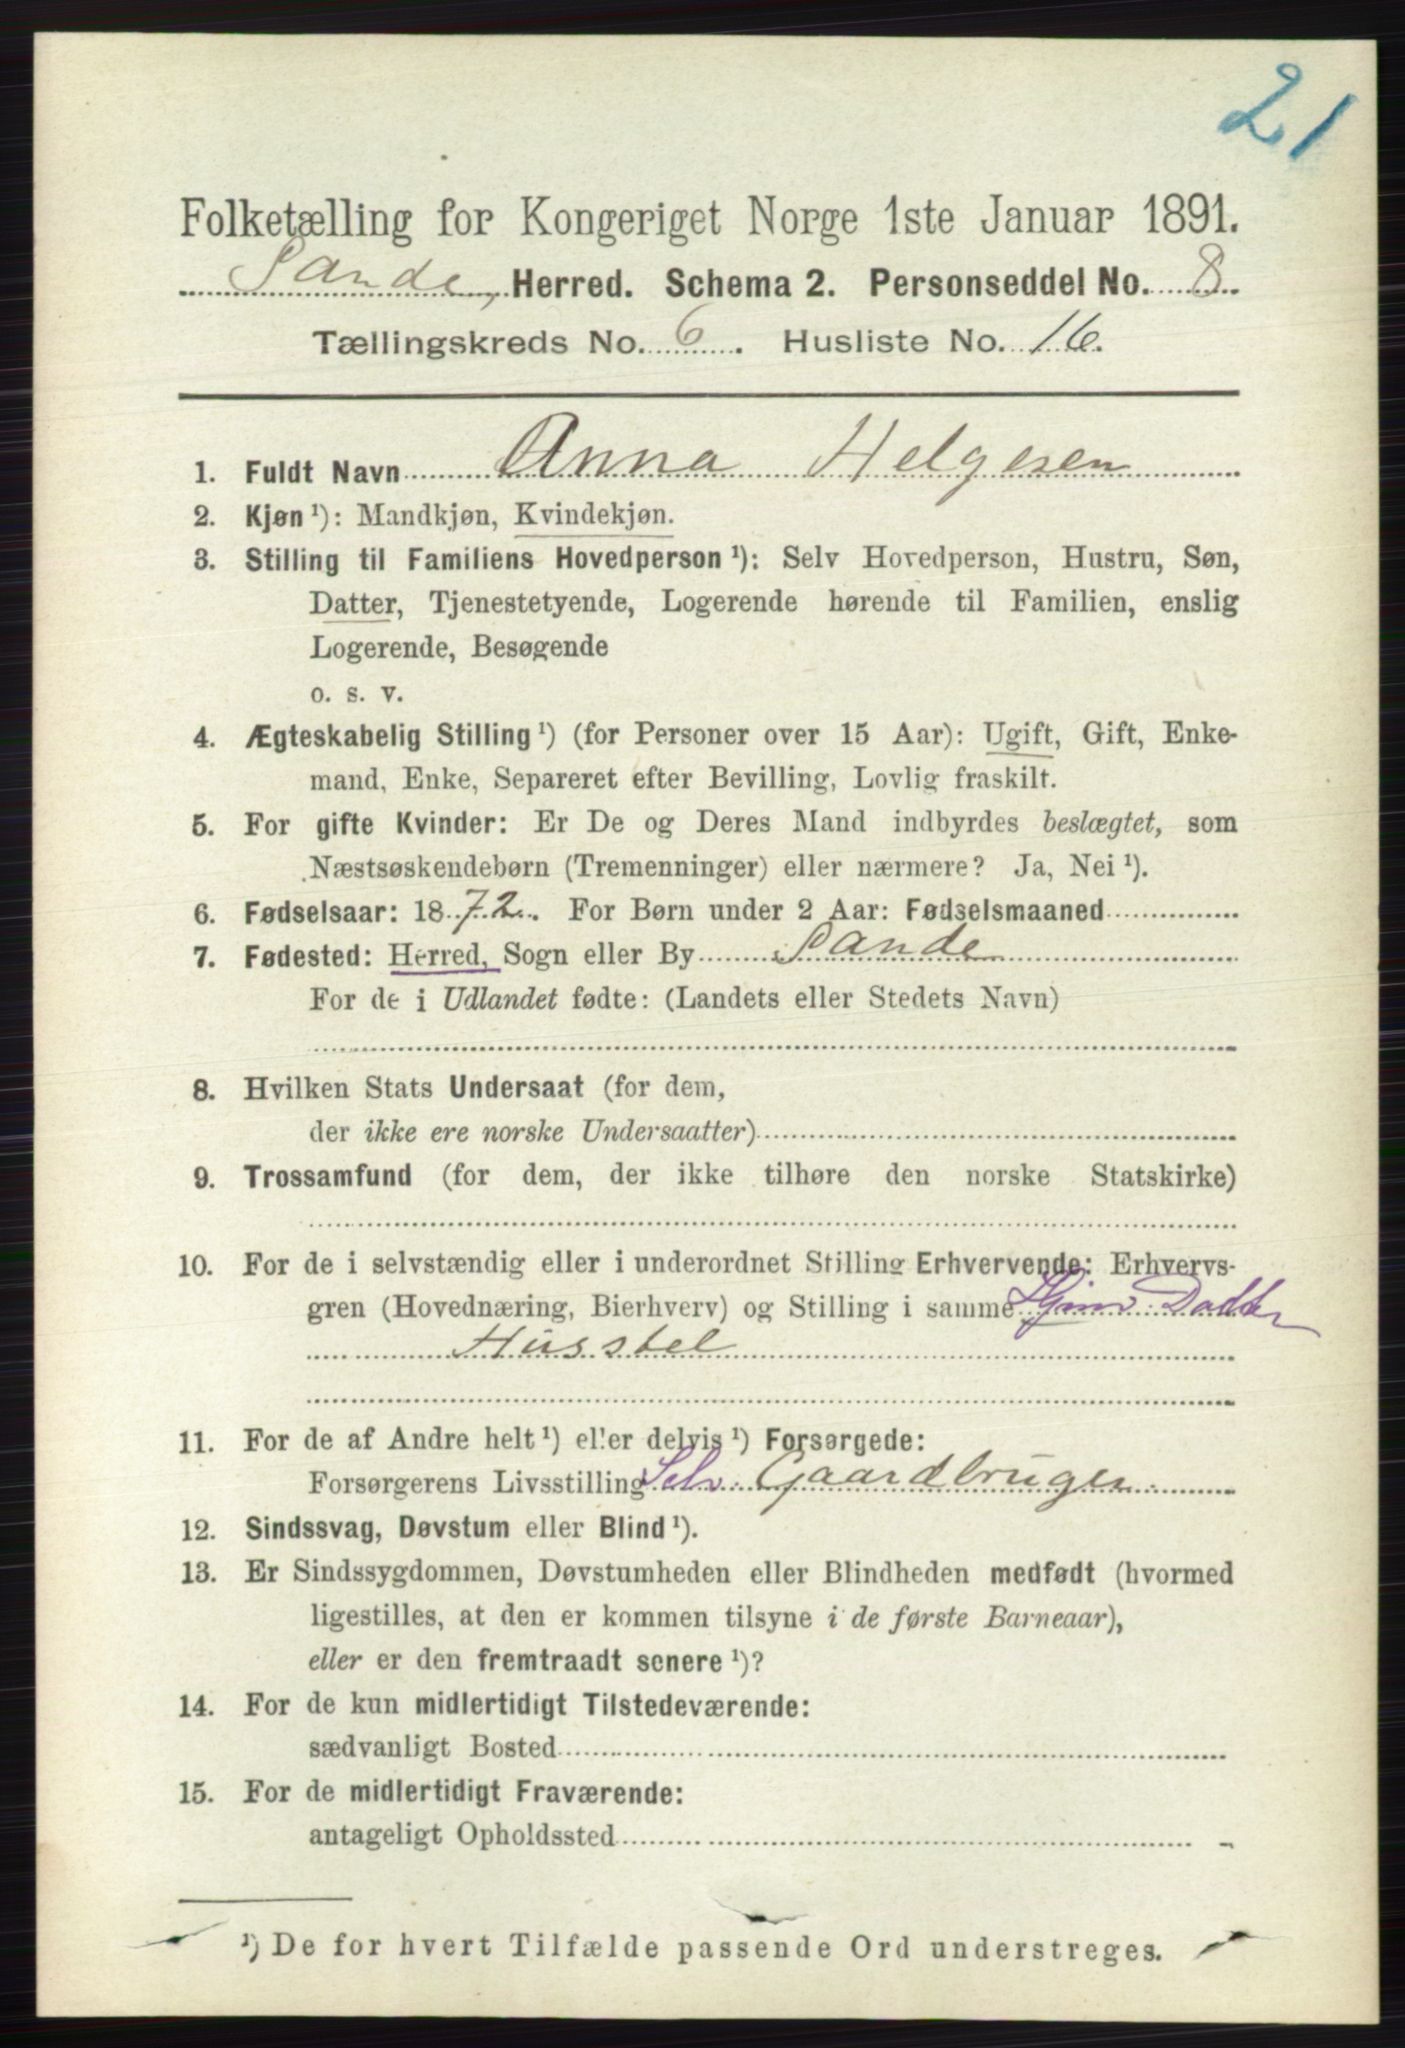 21
Folketælling for Kongeriget Norge 1ste Januar 1891.
Sande, Herred. Schema 2. Personseddel No. 8.
Tællingskreds No. 6. Husliste No. 16.
1. Fuldt Navn Anna Helgesen
2. Kjøn ¹): Mandkjøn, Kvindekjøn.
3. Stilling til Familiens Hovedperson ¹): Selv Hovedperson, Hustru, Søn,
Datter, Tjenestetyende, Logerende hørende til Familien, enslig
Logerende, Besøgende
o. s. v.
4. Ægteskabelig Stilling ¹) (for Personer over 15 Aar): Ugift, Gift, Enke-
mand, Enke, Separeret efter Bevilling, Lovlig fraskilt.
5. For gifte Kvinder: Er De og Deres Mand indbyrdes beslægtet, som
Næstsøskendebørn (Tremenninger) eller nærmere? Ja, Nei ¹).
6. Fødselsaar: 1872. For Børn under 2 Aar: Fødselsmaaned
7. Fødested: Herred, Sogn eller By Sande
For de i Udlandet fødte: (Landets eller Stedets Navn)
8. Hvilken Stats Undersaat (for dem,
der ikke ere norske Undersaatter)
9. Trossamfund (for dem, der ikke tilhøre den norske Statskirke)
10. For de i selvstændig eller i underordnet Stilling Erhvervende: Erhvervs-
gren (Hovednæring, Bierhverv) og Stilling i samme
Husstel
11. For de af Andre helt ¹) eller delvis ¹) Forsørgede:
Forsørgerens Livsstilling Selv. Gaardbruger
12. Sindssvag, Døvstum eller Blind ¹).
13. Er Sindssygdommen, Døvstumheden eller Blindheden medfødt (hvormed
ligestilles, at den er kommen tilsyne i de første Barneaar),
eller er den fremtraadt senere ¹)?
14. For de kun midlertidigt Tilstedeværende:
sædvanligt Bosted
15. For de midlertidigt Fraværende:
antageligt Opholdssted
¹) De for hvert Tilfælde passende Ord understreges.